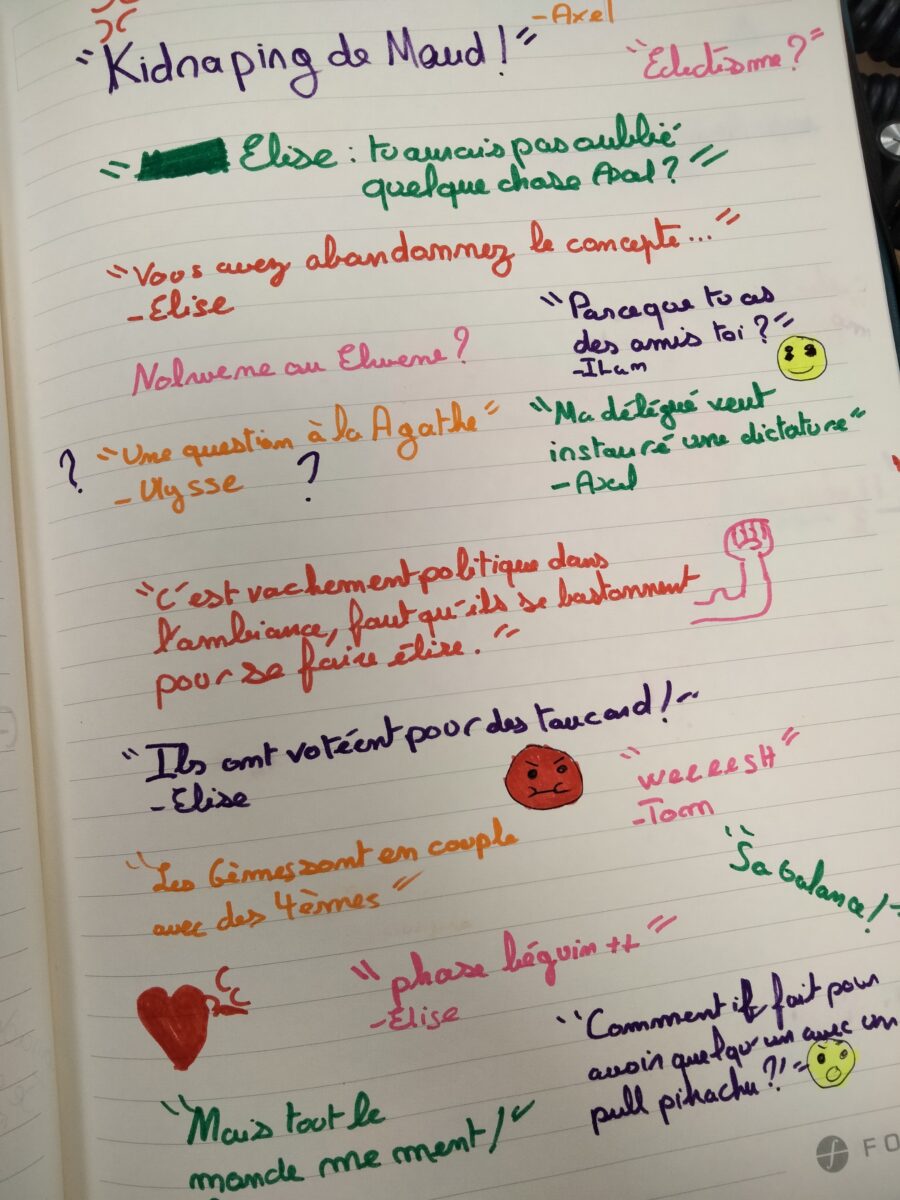 -Axel
"Kidnaping de Maud !"
"Eclectisme ?"
" Elise : tu aurais pas oublié
quelque chose Axel ? "
"Vous avez abandonnez le concepte..."
-Elise
"Parceque tu as
des amis toi ?"
-Ilam
Nolwene ou Elwene ?
"Une question à la Agathe"
-Ulysse
? ?
"Ma délégué veut
instauré une dictature"
-Axel
"C'est vachement politique dans
l'ambiance, faut qu'ils se bastonnent
pour se faire élire."
"Ils ont votéent pour des toucard !"
-Elise
"weeeesH"
-Tom
"Les 6èmes sont en couple
avec des 4èmes"
"Sa balance !"
"phase béguin ++"
-Elise
"Comment il fait pour
avoir quelqu'un avec un
pull pikachu ?!"
"Mais tout le
monde me ment !"
FO